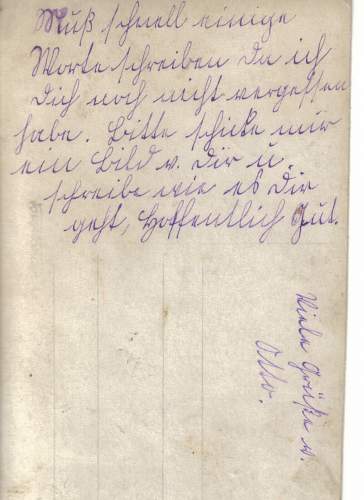 Muß schnell einige
Worte schreiben da ich
Dich noch nicht vergessen
habe. Bitte schicke mir
ein Bild v. Dir u.
schreibe wie es Dir
geht, Hoffentlich Gut.
Viele Grüße v.
Otto.